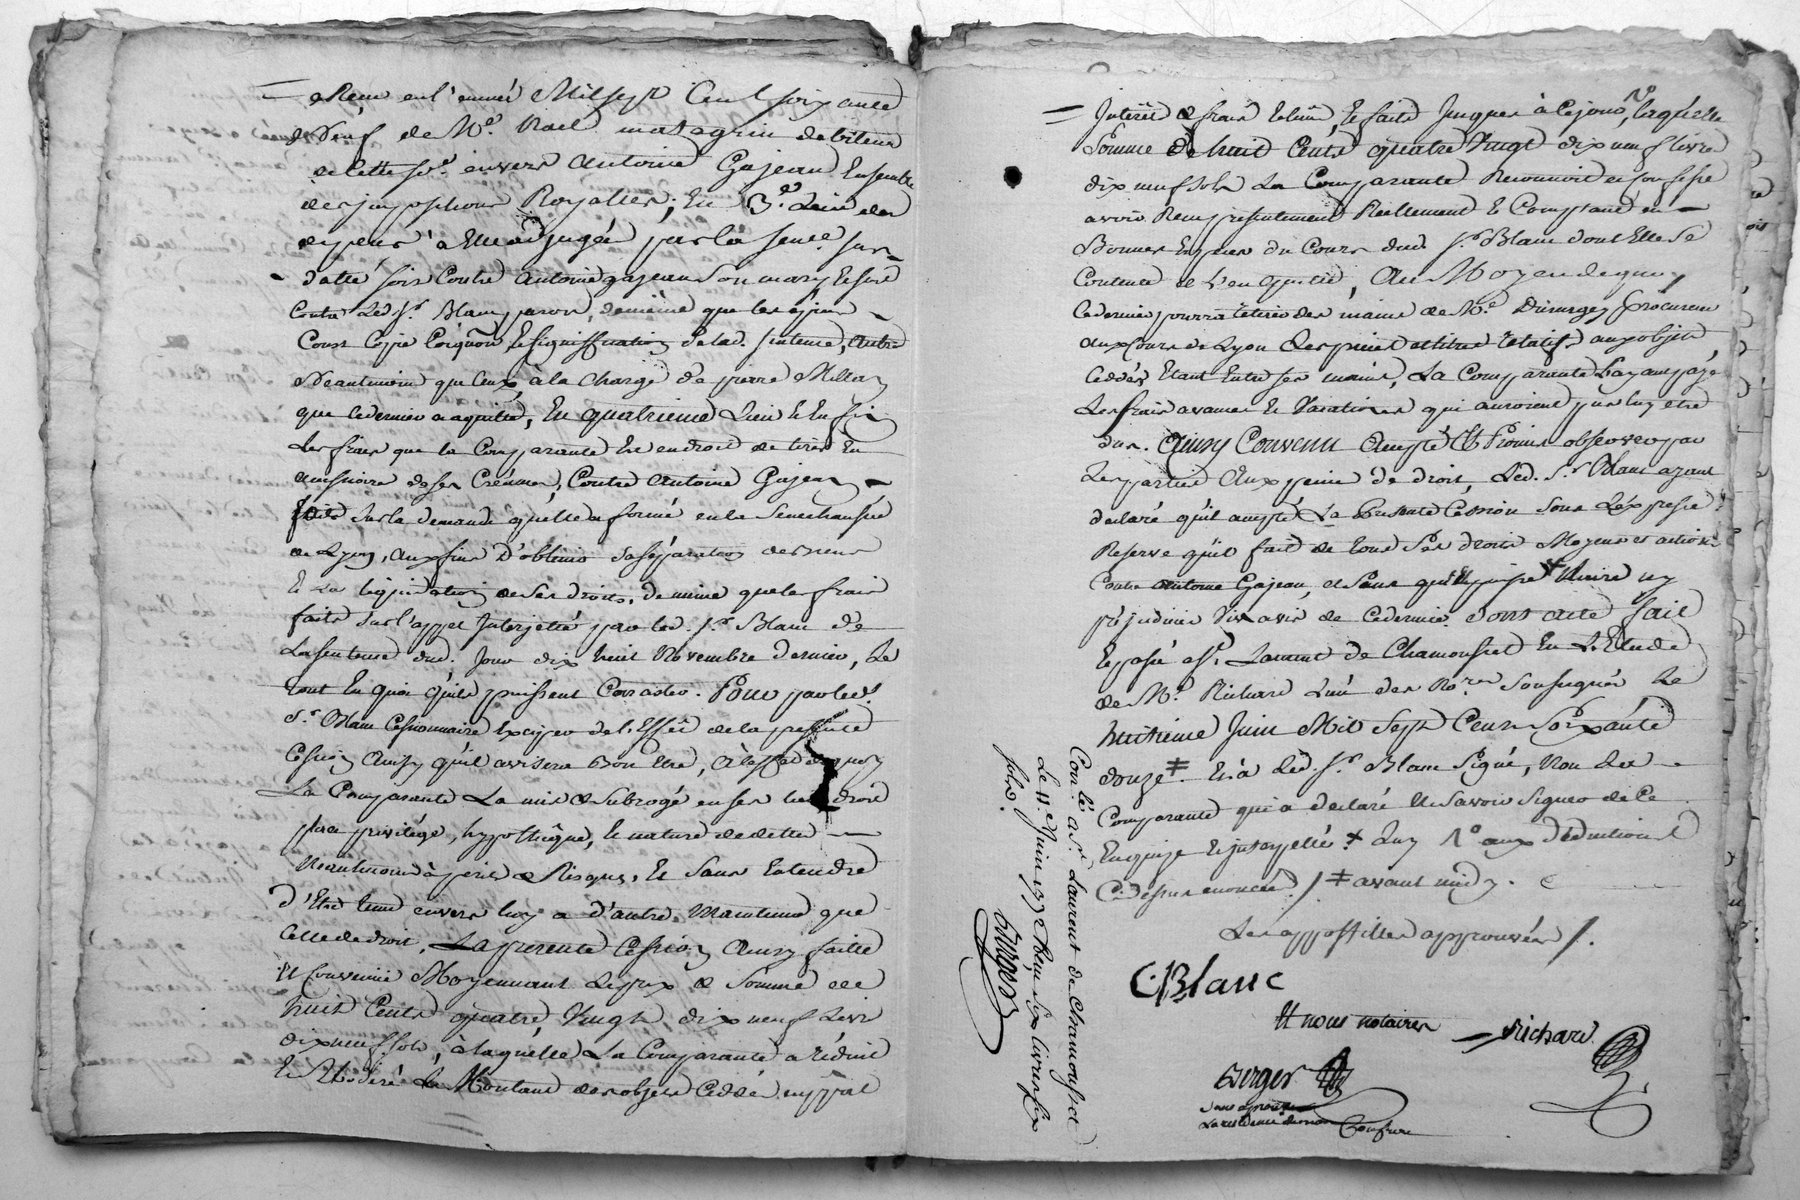 en l'année Mil sept Cent soixante
neuf de Me. Noel matagrin debiteur
de cette se. envers antoine Gajean Ensemble
des impositions Royalles; En 3e. Lieu des
depens a Elle adjugés par la sence. sus
datte soit Contre antoine gajean son mary Et soit
Contre Led. Sr. Blanc
Cout Coppie Et signiffication de lad. sentence, autre
Neantmoins que Ceux à la charge de pierre Millon
que ce dernier a aquitté, En quatrieme Lieu Et Enfin
Les frais que la Comparante Est en droit de tirer En
accessoire de ses Créances, Contre antoine Gajean
faits sur la demande qu'elle a formé en la Senechaussée
de Lyon, aux fins D'obtenir sa séparation de biens
Et La liquidation de ses droits, de meme que les frais
faits sur l'appel Interjetté par led. Sr. Blanc de
La sentence dud. Jour dix huit Novembre dernier, Le
tout En quoi qu'ils puissent Consister. Pour par led.
Sr. Blanc Cessionnaire Exciper de l'Effet de la presente
Cession Ainsy qu'il avisera Bon Etre, à l'effet de quoy
La Comparante La mis & Subrogé en ses lieu droit
place privilége, hypothêque, Et nature de dette
Neantmoins à peril & Risques, Et Sans Entendre
d'Etre tenue envers luy a d'autre Maintenue que
Celle de droit. La presente Cession Ainsy faitte
Et Convenue Moyennant Le prix & Somme de
huit Cents quatre Vingt dix neuf Livres
dix neuf sols, à laquelle La Comparante a réduit
Et Modéré Le Montant des objets Ceddés en pal
Interêt & frais Et faits Jusques à Ce jour, Laquelle
Somme de huit Cents quatre Vingt dix neuf livres
dix neuf sols La Comparante Reconnoit et Confesse
avoir Reçu presentement Reellement Et Comptant en
Bonnes Espèces du Cours dud. Sr. Blanc dont Elle Se
Contente Et L'en quitte, Au Moyen de quoy
Ce dernier pourra retirer des mains de Me. Procureur
aux Cours de Lyon Les pieces et titres relatifs aux objets
Ceddés Etant Entre ses mains, La Comparante
Les frais avances Et Vacations qui auroient pu luy etre
dus. Ainsy Convenu Accepté Et Promis observer par
Les parties Aux peine de droit, Led. Sr. Blanc ayant
declaré qu'il accepte La Presente Cession Sous L'expresse
Reserve qu'il fait de tous Ses droits Moyens et actions
Contre antoine Gajean, et Sans qu'il puisse Nuire ny
préjudicier Vis avis de Ce dernier dont acte fait
Et passé a St. Laurent de Chamousset En L'Etude
de Me. Richard L'un des Nores. Soussignés Le
huitieme Juin Mil Sept Cent Soixante
douze ‡. Et a Led. Sr. Blanc Signé, Non La
Comparante qui a declaré Ne Savoir Signer de Ce
Enquise Et interpellée
Cy dessus enoncées / ‡ avant midy.
Les appostilles approuvées /.
C. Blanc
Et nous notaires
Richard
Berger
Confrere
Con.lé a St. Laurent de Chamousset
Le 11e Juin 1772 Reçu Six livres Six
sols.
Berger